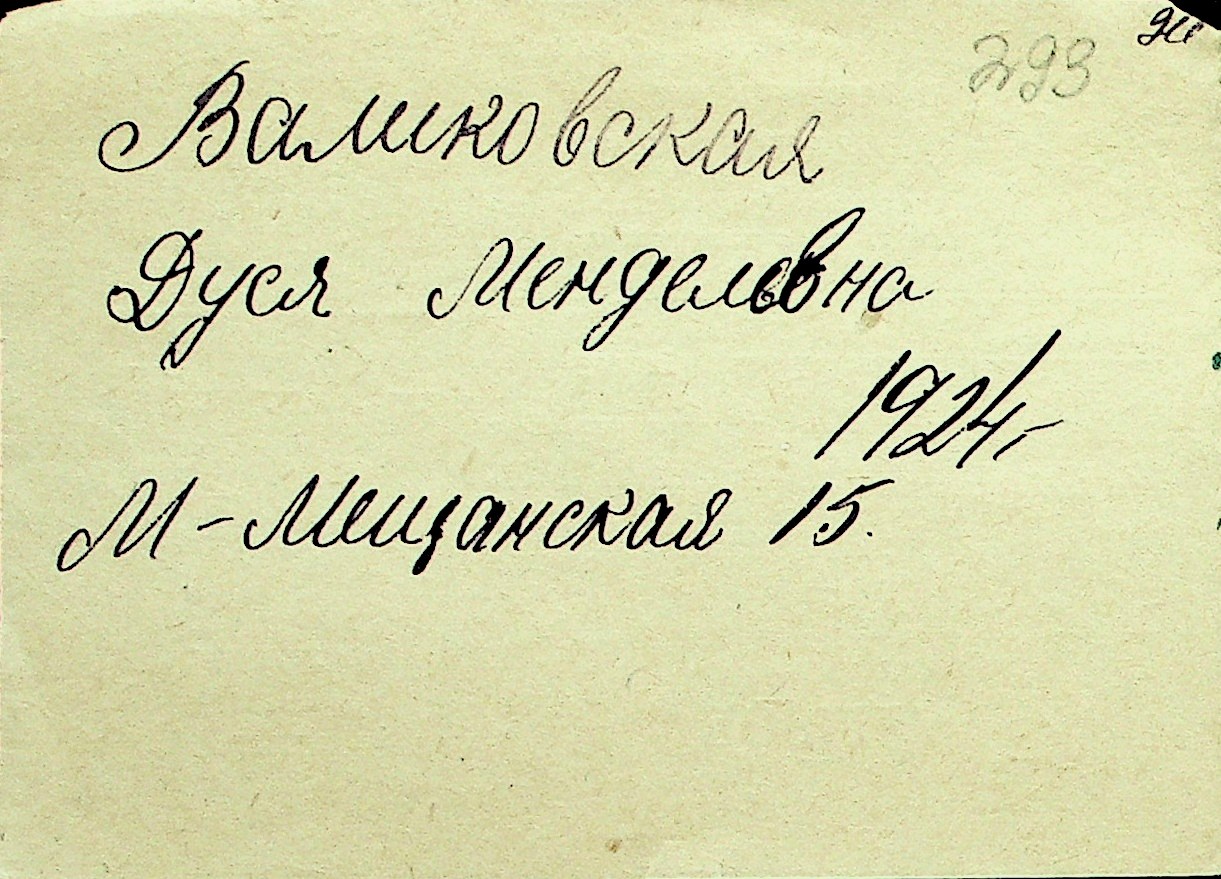 293
Валиковская
Дуся Менделевна
1924г
М-Мещанская 15.